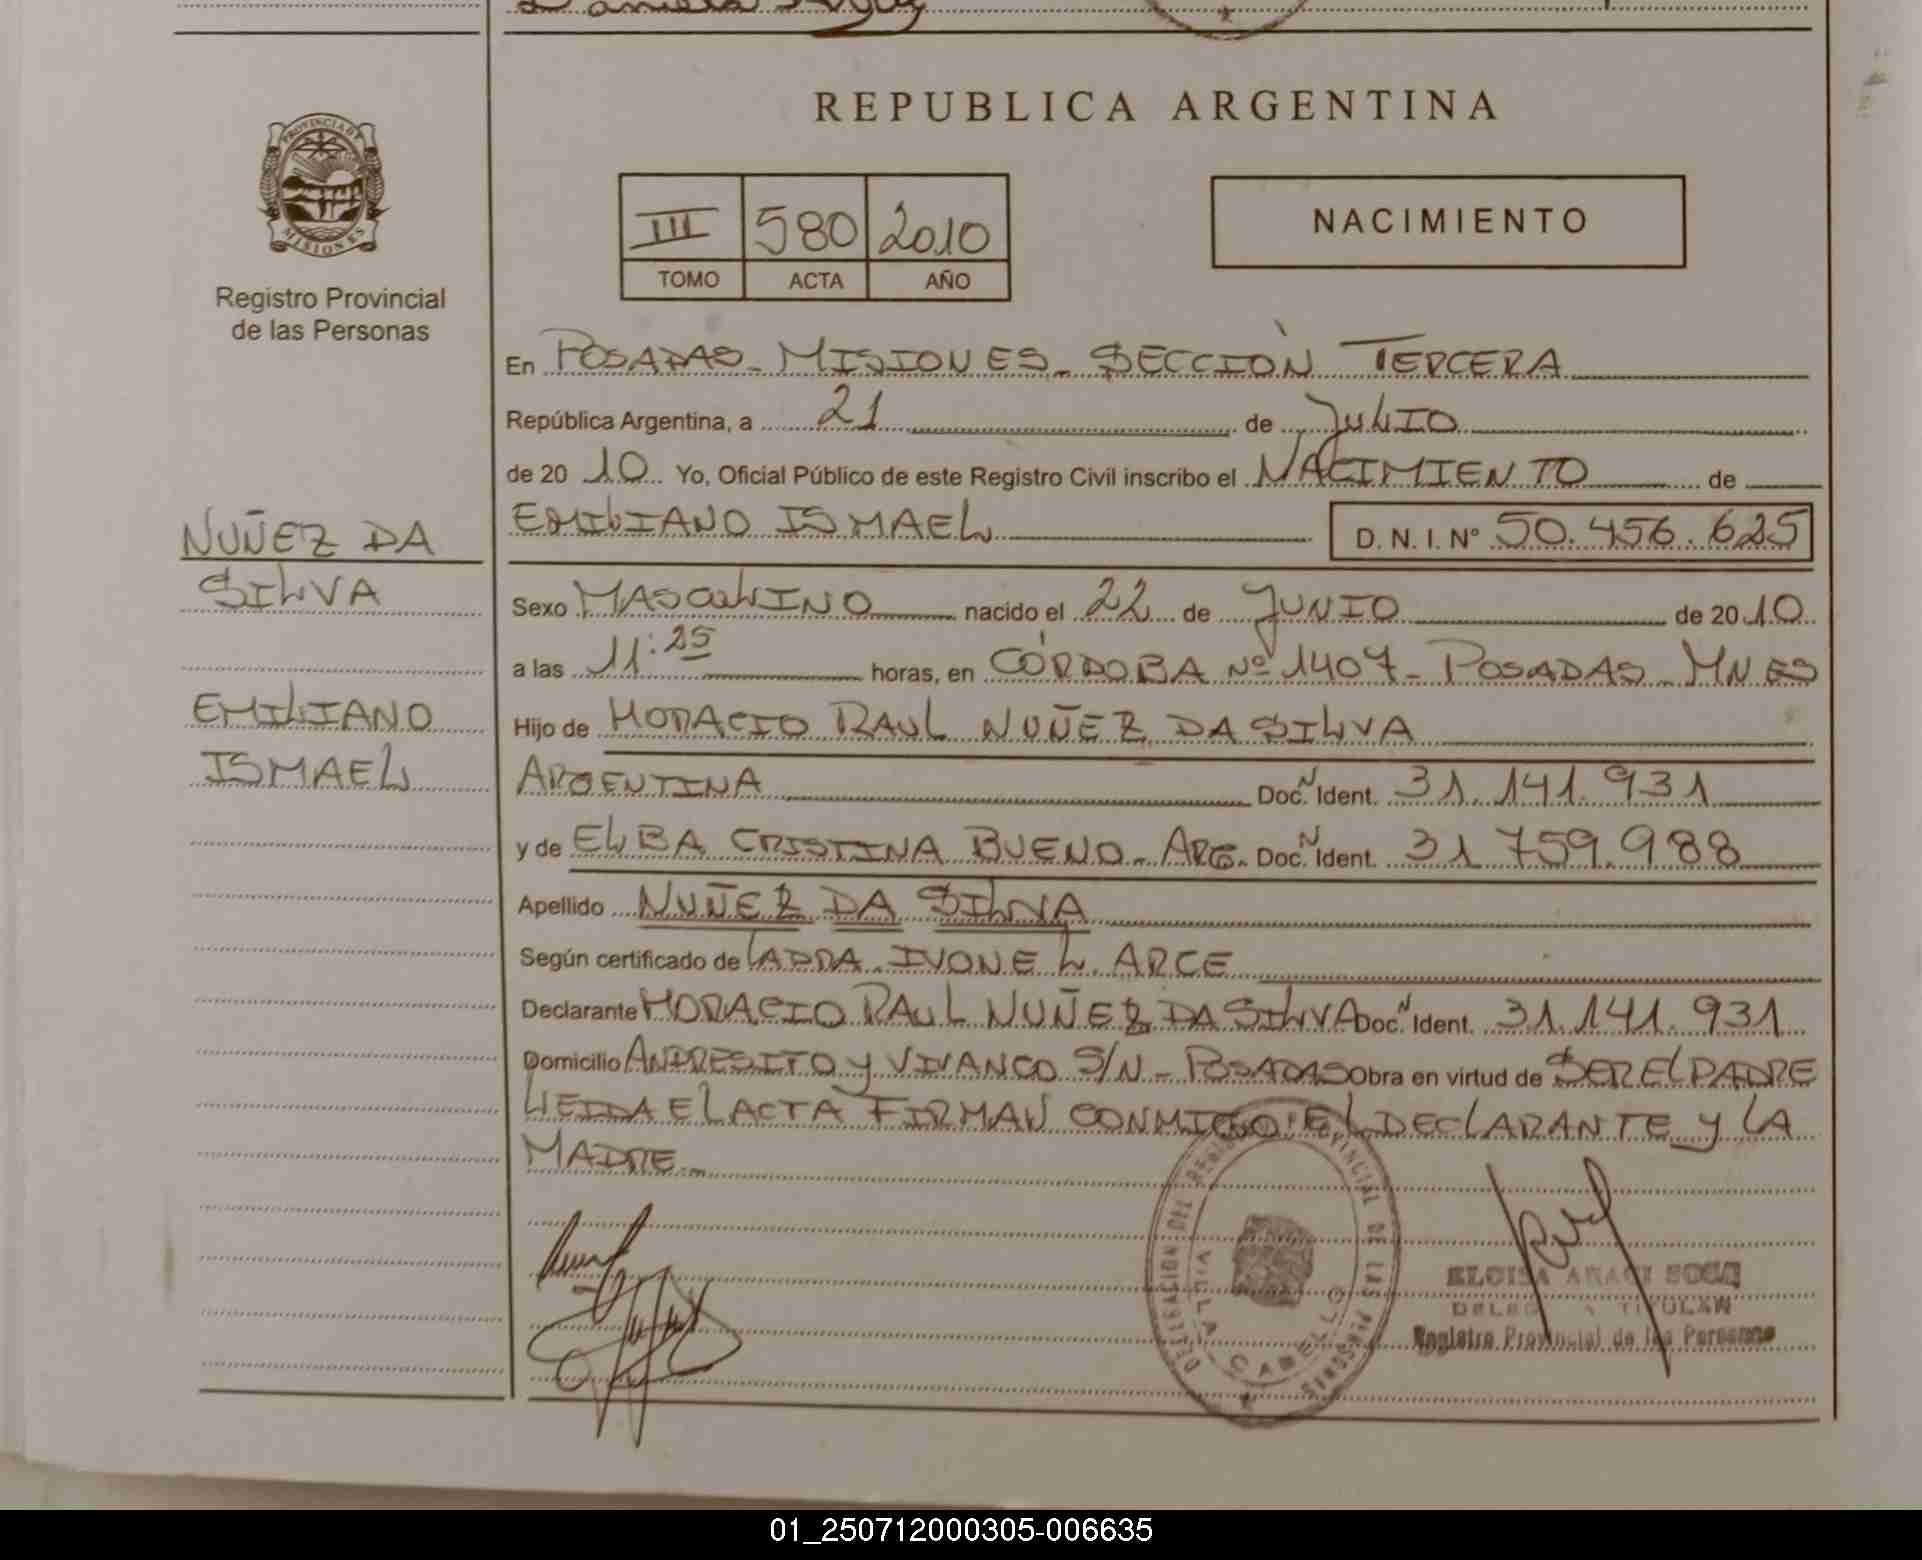 REPUBLICA ARGENTINA
PROVINCIA DE
MISIONES
Registro Provincial
de las Personas
III 580 2010
TOMO ACTA AÑO
NACIMIENTO
En POSADAS - MISIONES - SECCIÓN TERCERA
República Argentina, a 21 de JULIO
de 20 10 Yo, Oficial Público de este Registro Civil inscribo el NACIMIENTO de
EMILIANO ISMAEL D. N. I. Nº 50.456.625
NUÑEZ DA
SILVA
EMILIANO
ISMAEL
Sexo MASCULINO nacido el 22 de JUNIO de 20 10
a las 11:25 horas, en CÓRDOBA Nº 1407 - POSADAS - MNES
Hijo de HORACIO RAUL NUÑEZ DA SILVA
ARGENTINA Doc. Ident. N 31.141.931
y de ELBA CRISTINA BUENO - ARG. Doc. Ident. N 31 759.988
Apellido NUÑEZ DA SILVA
Según certificado de LA DRA. IVONE L. ARCE
Declarante HORACIO RAUL NUÑEZ DA SILVA Doc. Ident. N 31.141.931
Domicilio ANDRESITO y VIVANCO S/N - POSADAS Obra en virtud de SER EL PADRE
LEIDA EL ACTA FIRMAN CONMIGO: EL DECLARANTE y LA
MADRE -
DELEGACION DEL REGISTRO PROVINCIAL DE LAS PERSONAS
VILLA CABELLO
ELOISA ARACI SOSA
DELEGADA TITULAR
Registro Provincial de las Personas
01_250712000305-006635